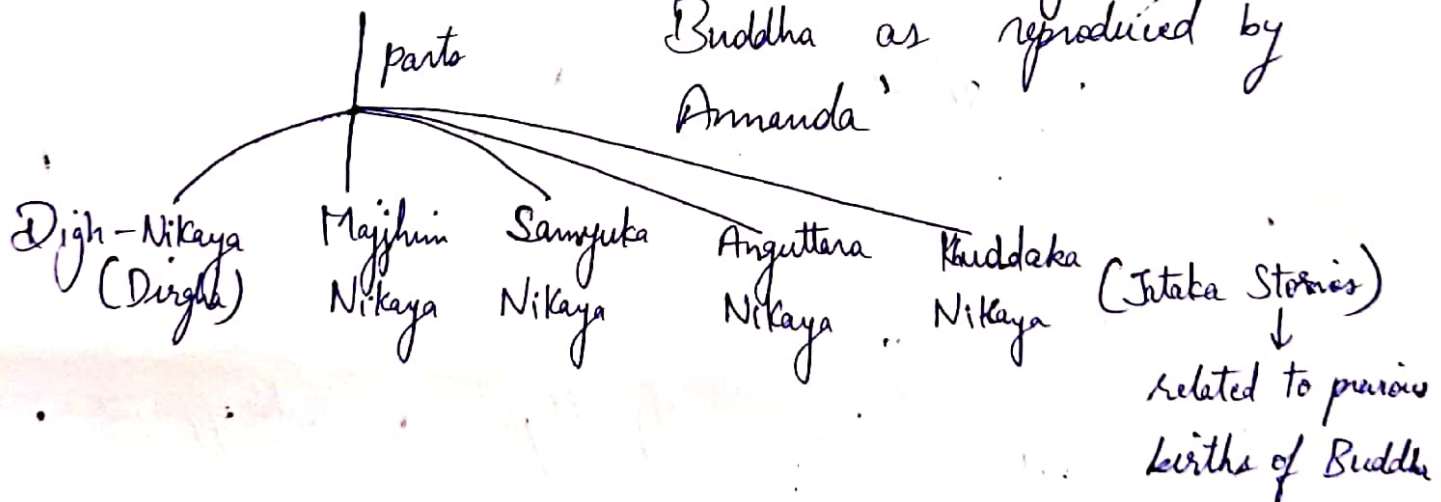 Buddha as reproduced by
parts
Annanda'
Digh-Nikaya
(Dirgha)
Majjhim
Nikaya
Samyuka
Nikaya
Anguttara
Nikaya
Khuddaka
Nikaya
(Jataka Stories)
↓
related to previous
births of Buddha